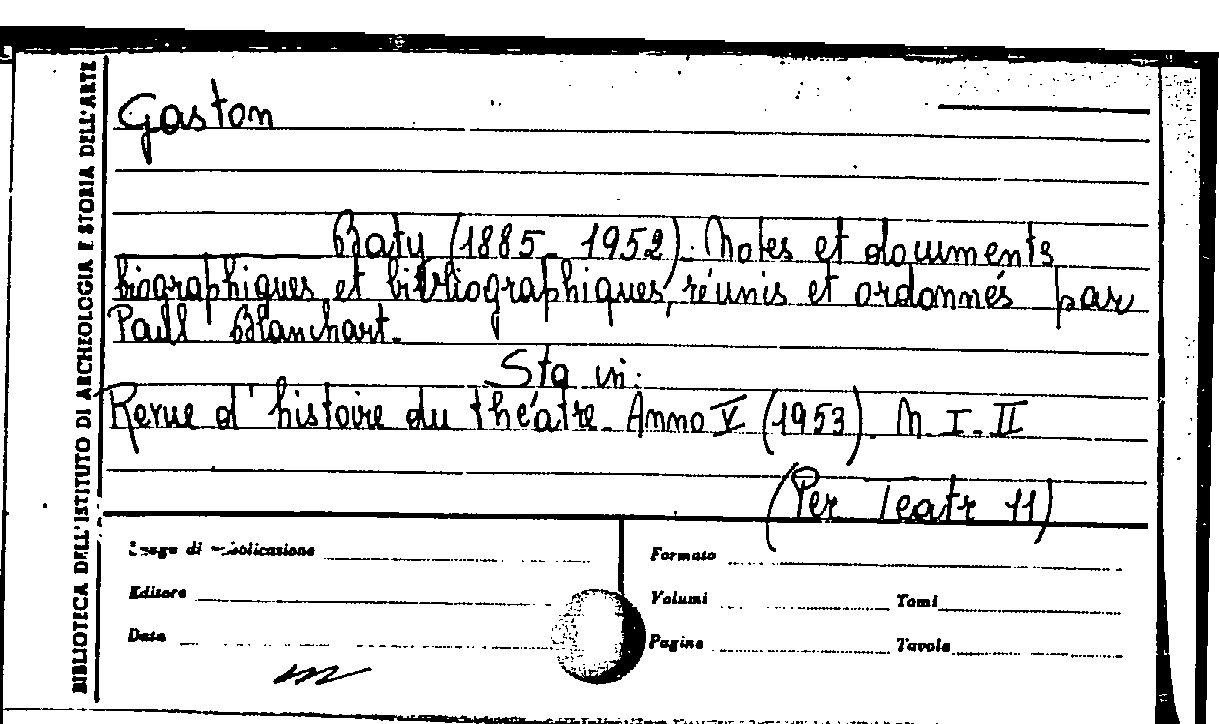 BIBLIOTECA DELL'ISTITUTO DI ARCHEOLOGIA E STORIA DELL'ARTE
Gaston
Baty (1885-1952). Notes et documents
biographiques et bibliographiques, réunis et ordonnés par
Paul Blanchart.
Sta in:
Revue d'histoire du théâtre. Anno V (1953). N. I-II
(Per Teatr 11)
Luogo di pubblicazione
Formato
Editore
Volumi
Tomi
Data
Pagine
Tavole